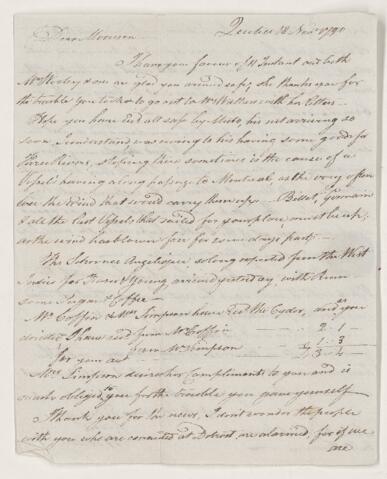 Quebec 18 Nov. 1790
Dear Morrison
I have your favour of 11 Instant and both
Mrs Morley & me are glad you arrived safe; she thanks you for
the trouble you took to go out to Mrs Walker with her Letters
I hope you have had all safe by Mato his not arriving so
soon I understand was owing to his having some goods for
Three Rivers, stopping there sometimes is the cause of a
Vessel's having a long passage to Montreal as they very often
lose the Wind that would carry them up — Billet, Germain
& all the last Vessels that sailed for your place must be up,
as the wind has blown fair for some days past —
The Schooner Angelique so long expected from the West
Indies for Fraser & Young arrived yesterday, with Rum
some Sugar & Coffee —
Mr Coffin & Mrs Simpson have rec'd the Cyder, and as you
directed I have rec'd from Mr Coffin — 2.1 —
for your acct from Mrs Simpson 1.3 /
£3.4 —
Mrs Simpson desires her Compliments to you and is
much obliged to you for the trouble you gave yourself
Thank you for the news, I don't wonder the people
with you who are connected at Detroit are alarmed, for if we
are